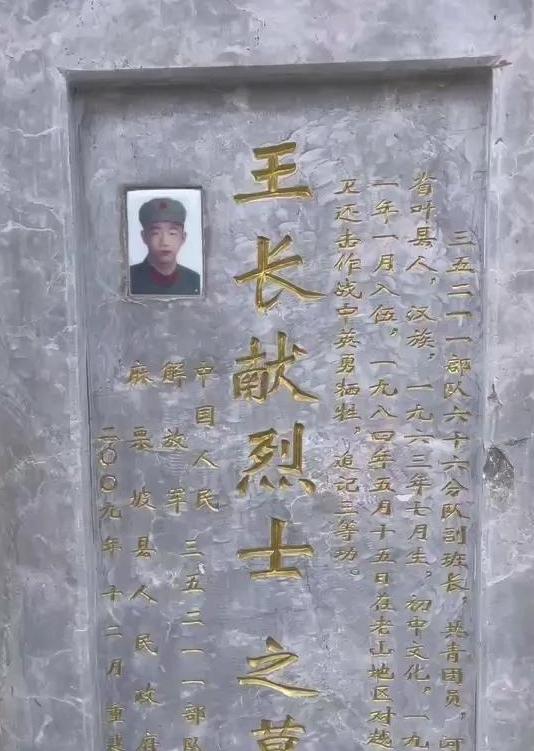 三五二一一部队六十六分队副班长，共青团员，河
省叶县人，汉族，一九六三年七月生，初中文化，一九
二年一月入伍，一九八四年五月十五日在老山地区对越
卫还击作战中英勇牺牲，追记三等功。
王长献烈士之墓
中国人民
解放军
三五二一一部队
麻栗坡县人民政府
二〇〇九年十二月重建